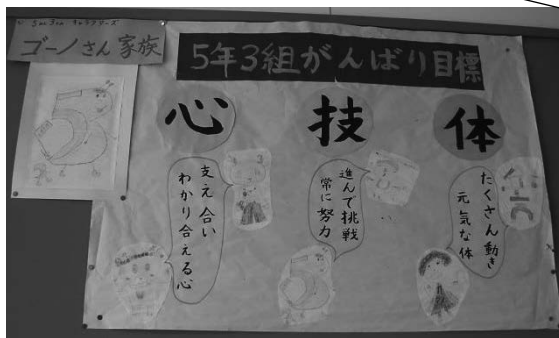 ゴーノさん家族
5年3組がんばり目標
心
技
体
支え合い
わかり合える心
進んで挑戦
常に努力
たくさん動き
元気な体